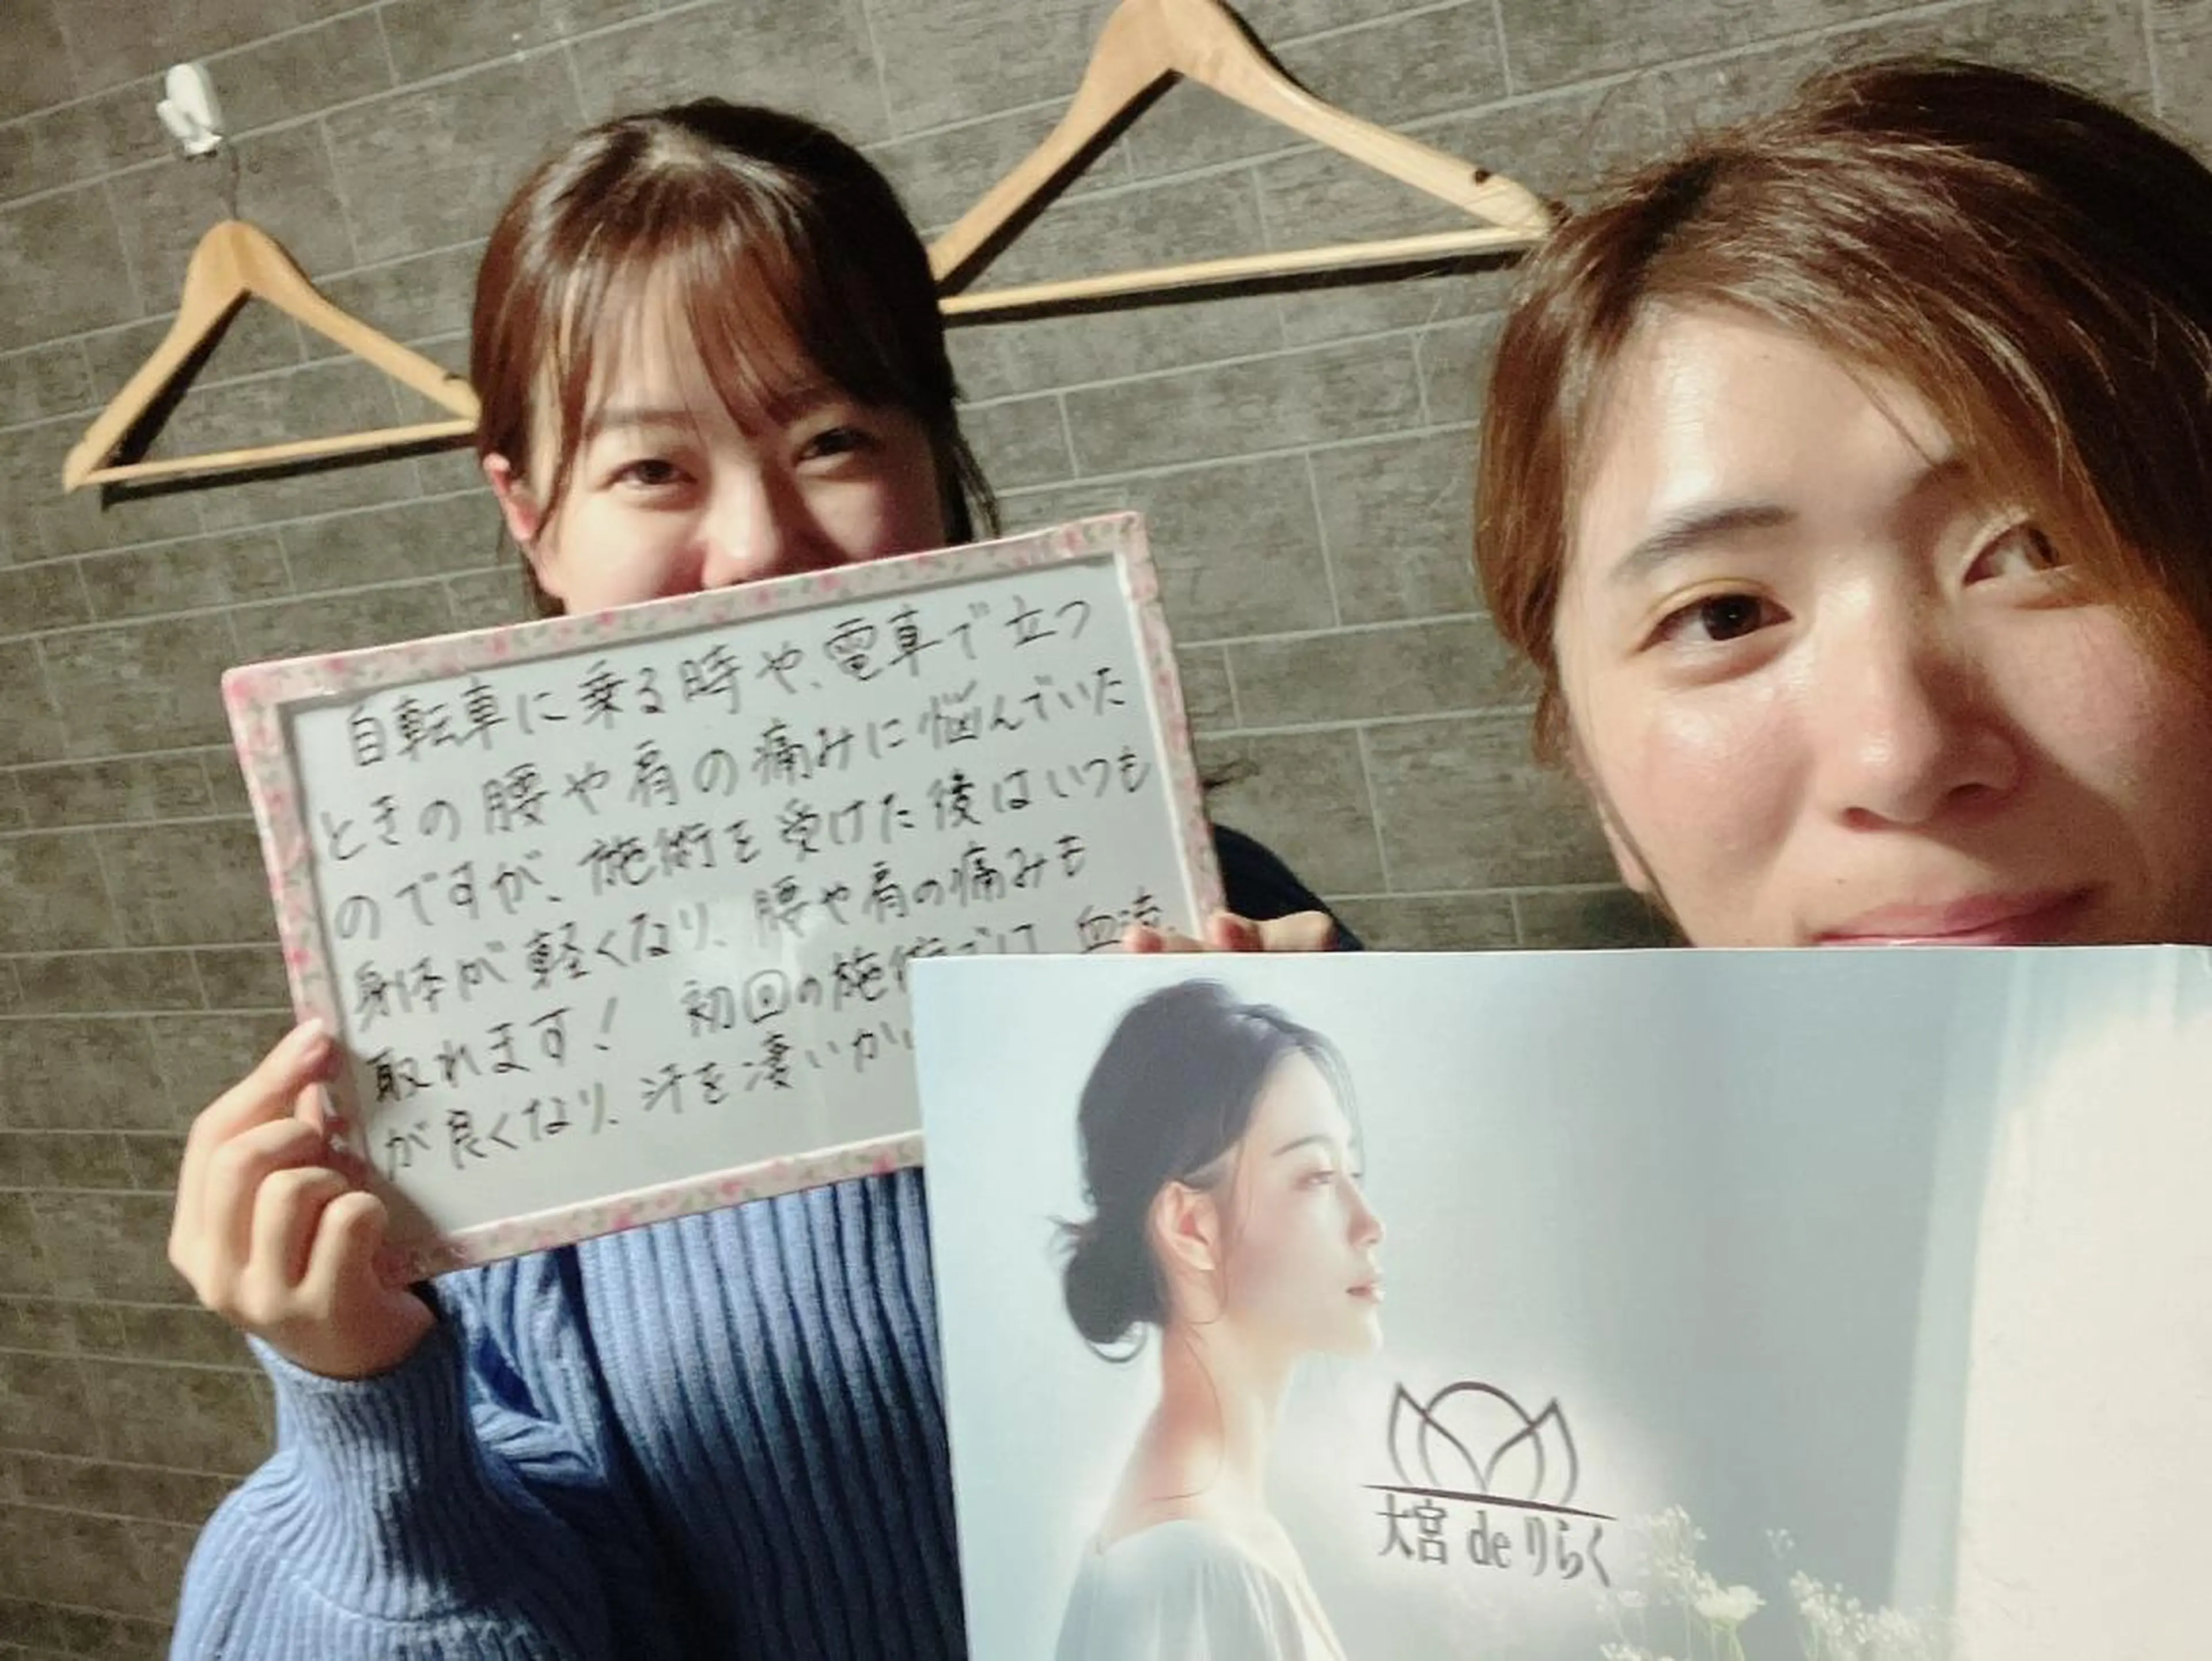 自転車に乗る時や、電車で立つ
ときの腰や肩の痛みに悩んでいた
のですが、施術を受けた後はいつも
身体が軽くなり、腰や肩の痛みも
取れます！ 初回の施術では、血流
が良くなり、汗を凄いかい
大宮 de りらく